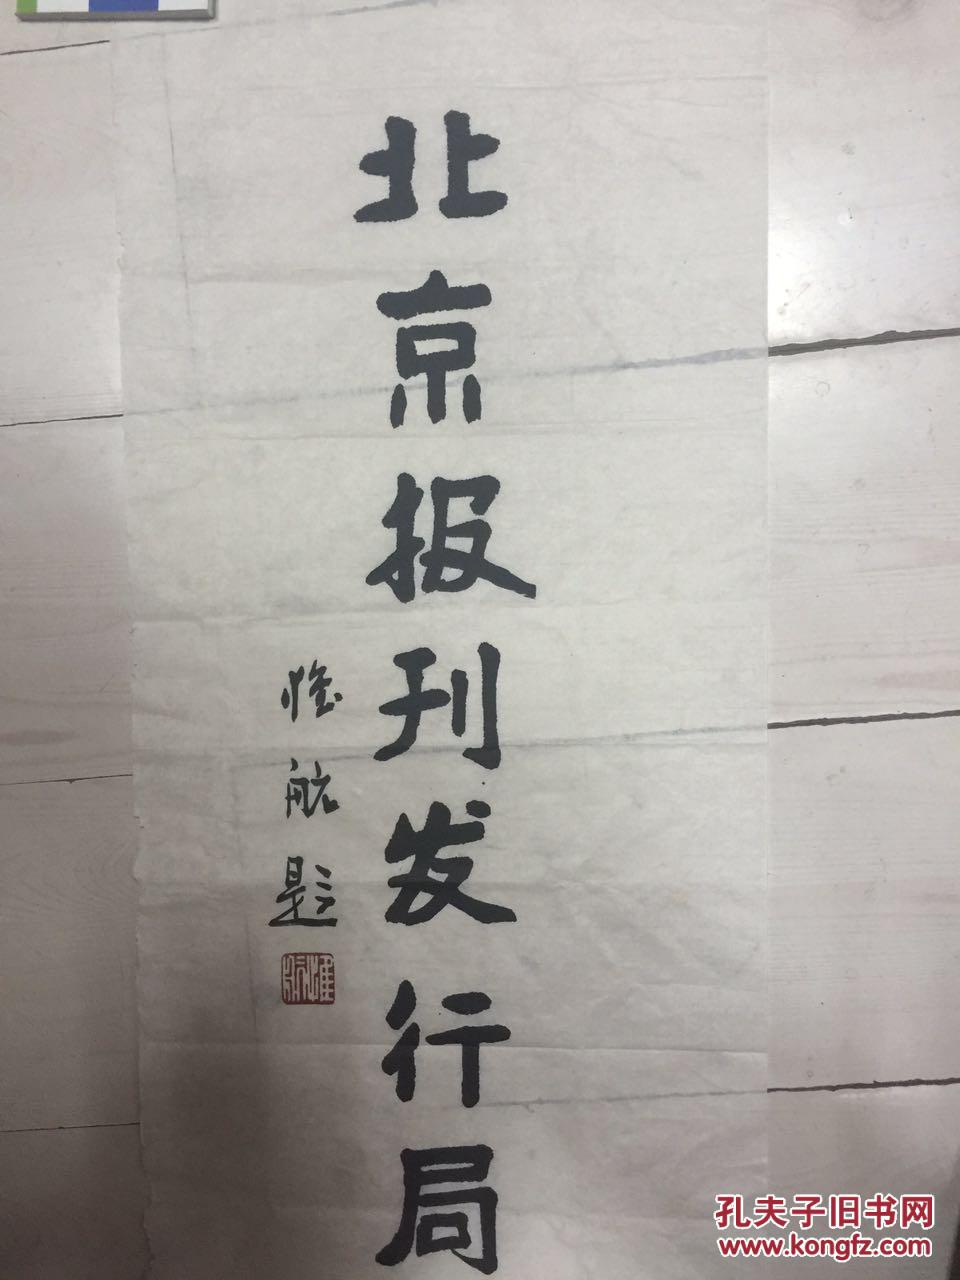 北京报刊发行局
惟航题
孔夫子旧书网
www.kongfz.com